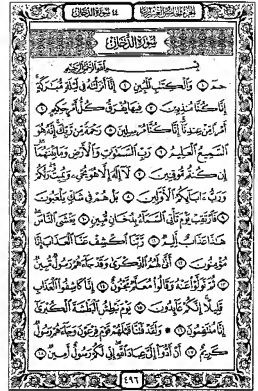 الجزء الخامس والعشرون ٤٤ سورة الدخان
سورة الدخان
بِسْمِ ٱللَّهِ ٱلرَّحْمَٰنِ ٱلرَّحِيمِ
حمٓ ١ وَٱلْكِتَٰبِ ٱلْمُبِينِ ٢ إِنَّآ أَنزَلْنَٰهُ فِى لَيْلَةٍ مُّبَٰرَكَةٍ
إِنَّا كُنَّا مُنذِرِينَ ٣ فِيهَا يُفْرَقُ كُلُّ أَمْرٍ حَكِيمٍ ٤
أَمْرًا مِّنْ عِندِنَآ إِنَّا كُنَّا مُرْسِلِينَ ٥ رَحْمَةً مِّن رَّبِّكَ إِنَّهُۥ هُوَ
ٱلسَّمِيعُ ٱلْعَلِيمُ ٦ رَبِّ ٱلسَّمَٰوَٰتِ وَٱلْأَرْضِ وَمَا بَيْنَهُمَآ
إِن كُنتُم مُّوقِنِينَ ٧ لَآ إِلَٰهَ إِلَّا هُوَ يُحْىِۦ وَيُمِيتُ رَبُّكُمْ
وَرَبُّ ءَابَآئِكُمُ ٱلْأَوَّلِينَ ٨ بَلْ هُمْ فِى شَكٍّ يَلْعَبُونَ
٩ فَٱرْتَقِبْ يَوْمَ تَأْتِى ٱلسَّمَآءُ بِدُخَانٍ مُّبِينٍ ١٠ يَغْشَى ٱلنَّاسَ
هَٰذَا عَذَابٌ أَلِيمٌ ١١ رَّبَّنَا ٱكْشِفْ عَنَّا ٱلْعَذَابَ إِنَّا
مُؤْمِنُونَ ١٢ أَنَّىٰ لَهُمُ ٱلذِّكْرَىٰ وَقَدْ جَآءَهُمْ رَسُولٌ مُّبِينٌ
١٣ ثُمَّ تَوَلَّوْا۟ عَنْهُ وَقَالُوا۟ مُعَلَّمٌ مَّجْنُونٌ ١٤ إِنَّا كَاشِفُوا۟ ٱلْعَذَابِ
قَلِيلًا إِنَّكُمْ عَآئِدُونَ ١٥ يَوْمَ نَبْطِشُ ٱلْبَطْشَةَ ٱلْكُبْرَىٰٓ
إِنَّا مُنتَقِمُونَ ١٦ وَلَقَدْ فَتَنَّا قَبْلَهُمْ قَوْمَ فِرْعَوْنَ وَجَآءَهُمْ رَسُولٌ
كَرِيمٌ ١٧ أَنْ أَدُّوٓا۟ إِلَىَّ عِبَادَ ٱللَّهِ إِنِّى لَكُمْ رَسُولٌ أَمِينٌ ١٨
٤٩٦